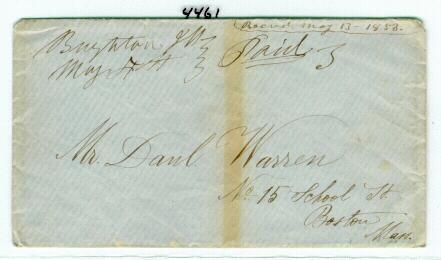 4461
Recevd May 13 - 1858.
Brighton
May 4th
Paid 3
Mr. Danl Warren
No 15 School St.
Boston
Mass.